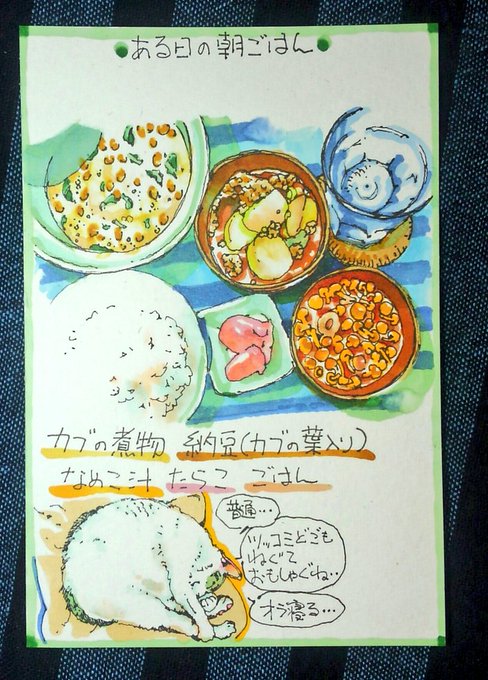 ある日の朝ごはん
カブの煮物 納豆(カブの葉入り)
なめこ汁 たらこ ごはん
普通…
ツッコミどごも
ねぐて
おもしゃぐね…
オラ寝る…